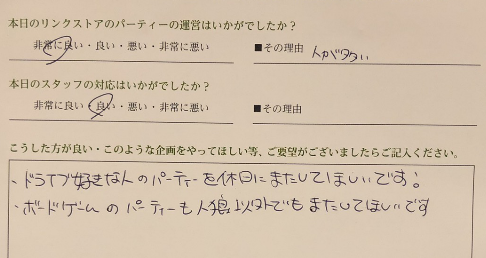 本日のリンクストアのパーティーの運営はいかがでしたか？
非常に良い・良い・悪い・非常に悪い ■その理由 人が多い
本日のスタッフの対応はいかがでしたか？
非常に良い・良い・悪い・非常に悪い ■その理由
こうした方が良い・このような企画をやってほしい等、ご要望がございましたらご記入ください。
・ドライブ好きな人のパーティーを休日にまたしてほしいです！
・ボードゲームのパーティーも人狼以外でもまたしてほしいです